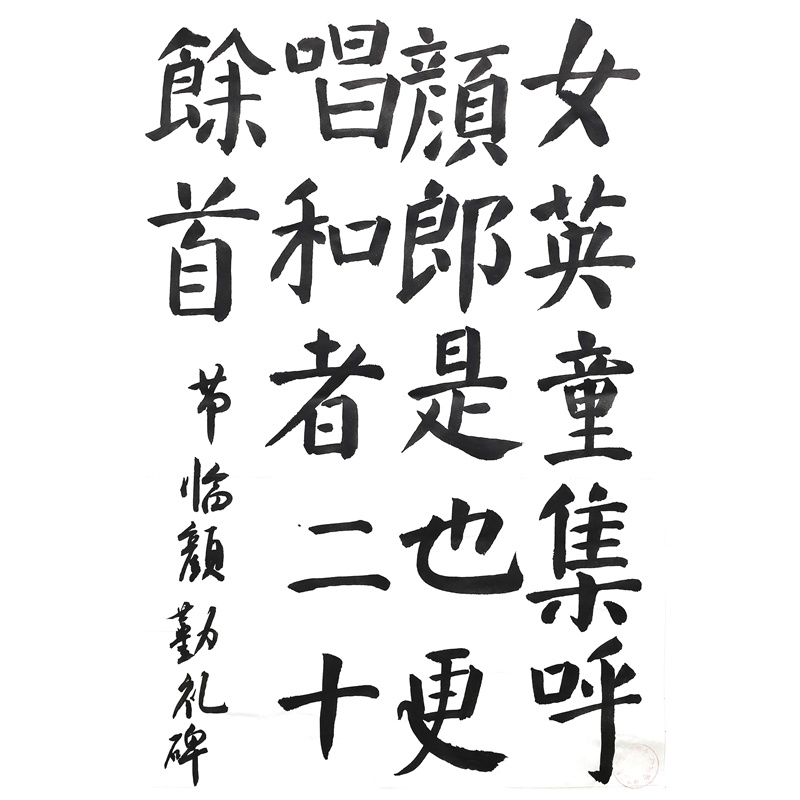 女英童集呼
顔郎是也更
唱和者二十
餘首
节临颜勤礼碑